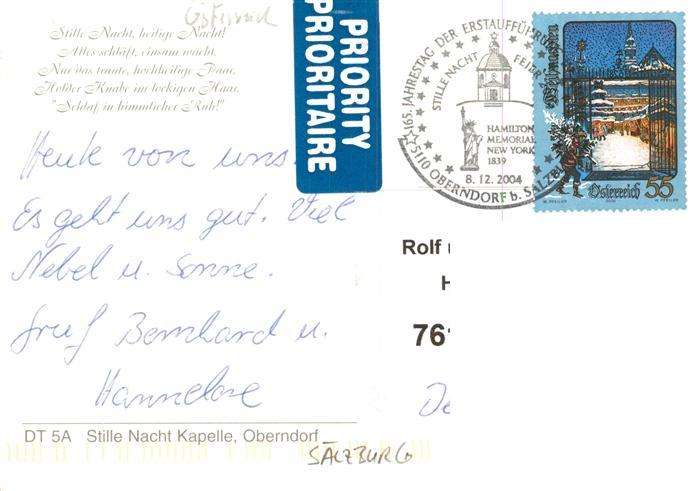 Österreich
Stille Nacht, heilige Nacht!
Alles schläft, einsam wacht
Nur das traute, hochheilige Paar,
Holder Knabe im lockigen Haar,
"Schlaf in himmlischer Ruh!"
PRIORITY
PRIORITAIRE
165. JAHRESTAG DER ERSTAUFFÜHRUNG
STILLE NACHT
FEIER
HAMILTON
MEMORIAL
NEW YORK
1839
8. 12. 2004
5110 OBERNDORF b. SALZB
Weihnachten
Österreich 55
Heute von uns.
Es geht uns gut. Viel
Nebel u. Sonne.
Gruß Bernhard u.
Hannelore
Rolf
H
76
De
DT 5A Stille Nacht Kapelle, Oberndorf
SALZBURG